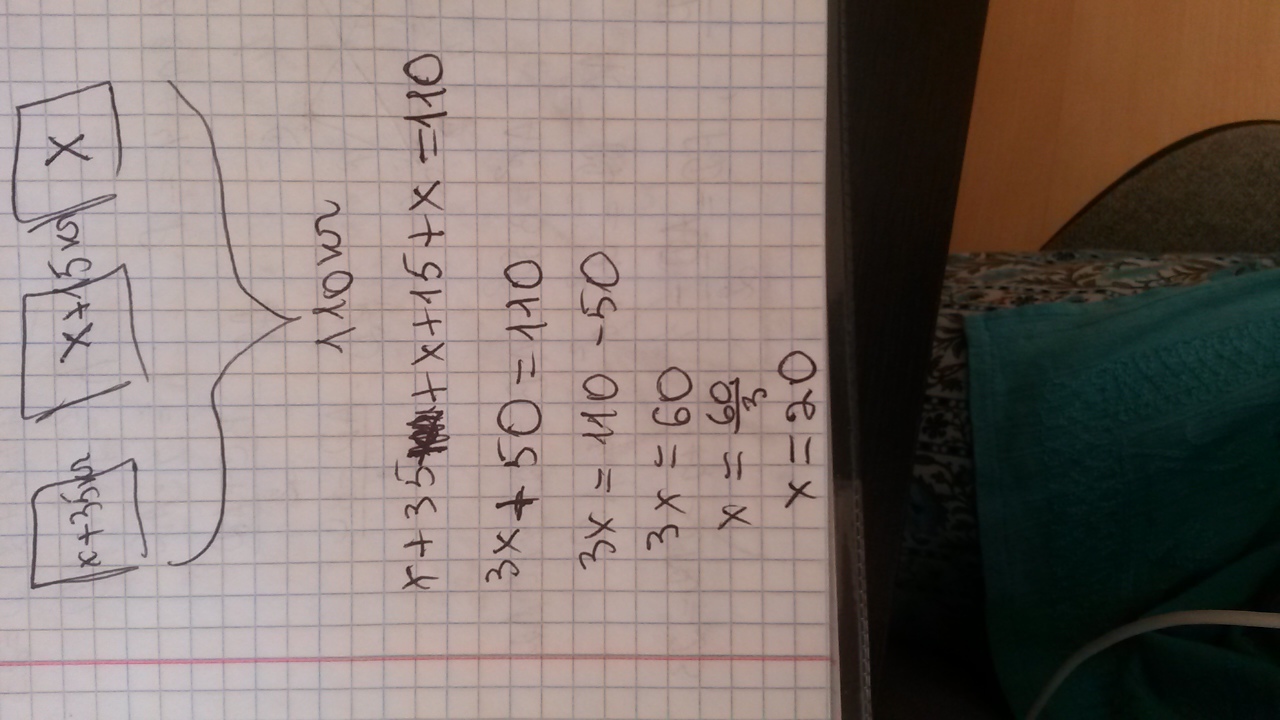 x+35кг x+15кг x
110кг
x+35+x+15+x=110
3x+50=110
3x=110-50
3x=60
x=60/3
x=20